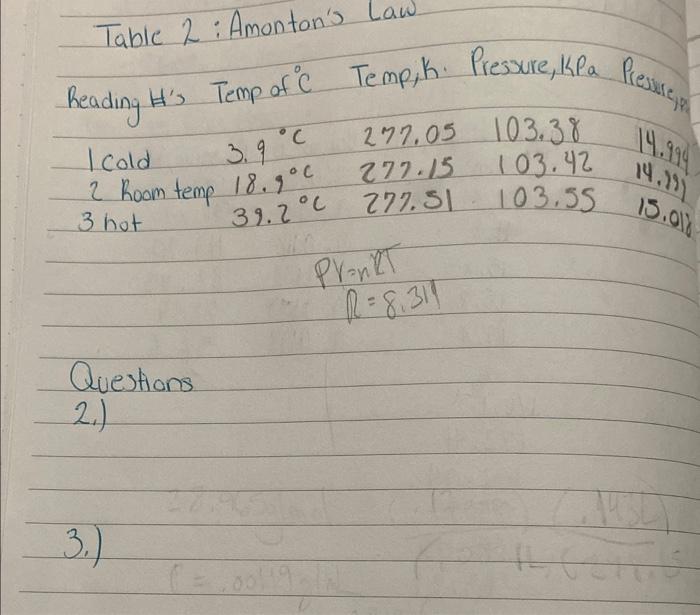 Table 2 : Amonton's Law
Reading #'s Temp of °C Temp, K. Pressure, KPa Pressure,
1 cold 3.9 °C 277.05 103.38 14.994
2 Room temp 18.9 °C 277.15 103.42
3 hot 39.2 °C 277.51 103.55 15.018
PV=nRT
R=8.314
Questions
2.)
3.)